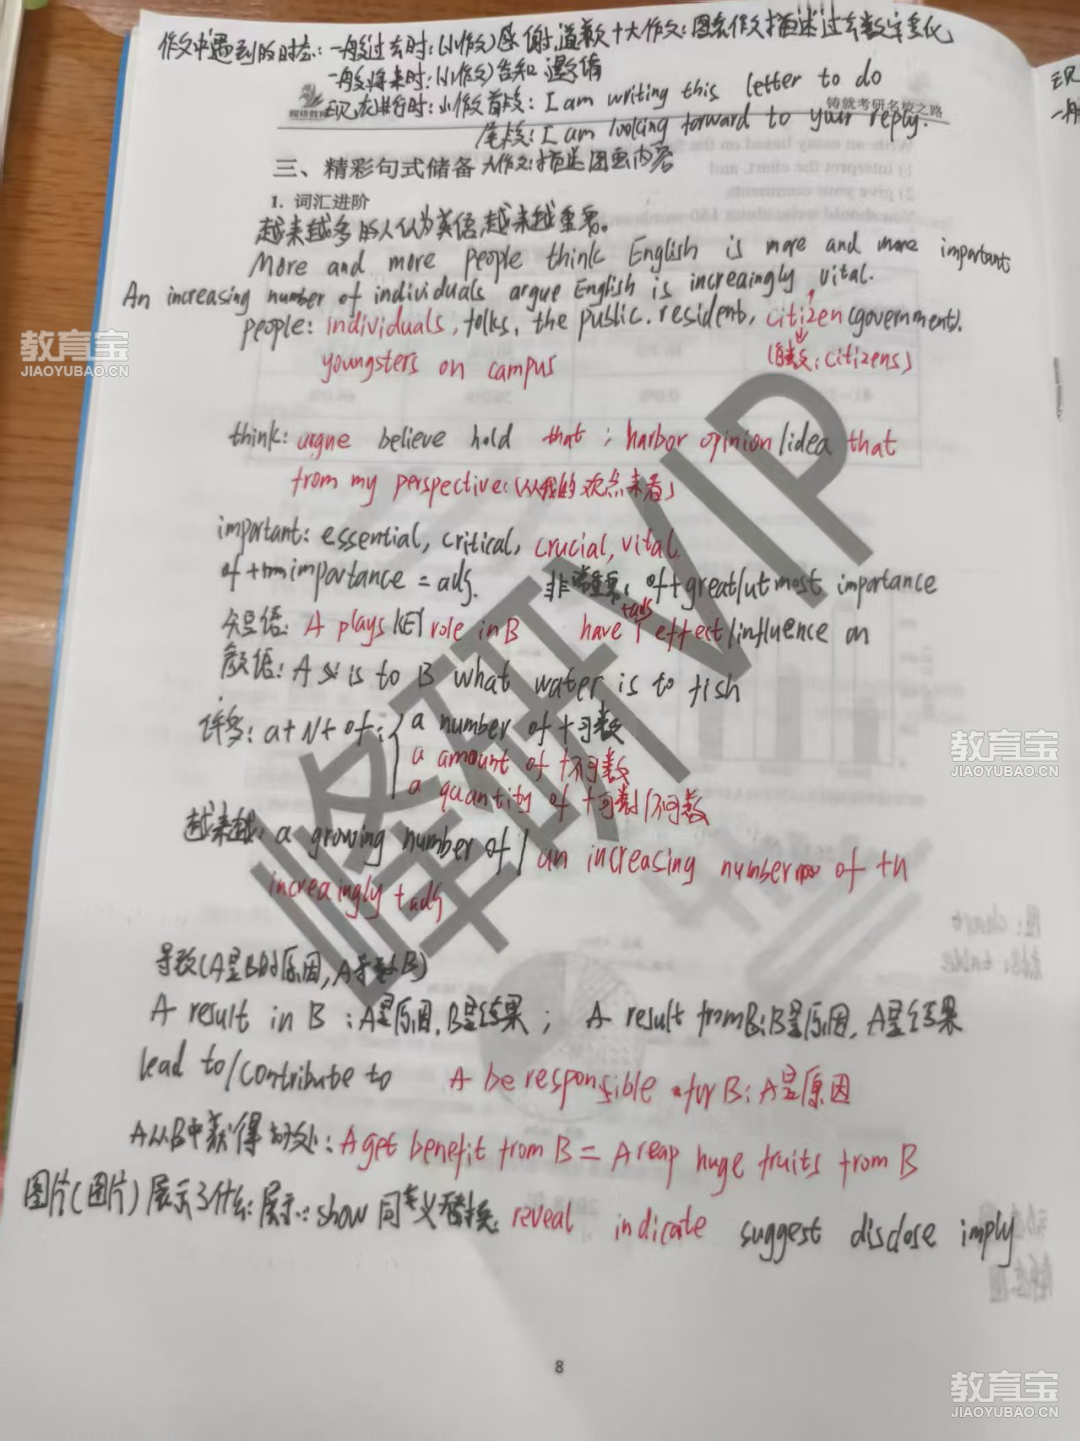 作文中遇到的时态：一般过去时：(小作文)感谢,道歉 + 大作文：图表作文描述过去数字变化
一般将来时：(小作文)告知 邀请
现在进行时：小作文首段：I am writing this letter to do
铸就考研名校之路
尾段：I am looking forward to your reply.
三、精彩句式储备 大作文：描述图画内容
1. 词汇进阶
越来越多的人认为英语越来越重要。
More and more people think English is more and more important
An increasing number of individuals argue English is increaingly vital.
people: individuals, folks, the public, resident, citizen (government).
(复数：citizens)
youngsters on campus
think: argue believe hold that ; harbor opinion/idea that
from my perspective: (从我的观点来看)
important: essential, critical, crucial, vital.
of + importance = adj. 非常重要：of + great/utmost importance
短语：A plays KEY role in B have + adj effect/influence on
谚语：A is to B what water is to fish
许多：a + N + of： a number of + 可数
a amount of + 不可数
a quantity of + 可数/不可数
越来越：a growing number of / an increasing number of + n
increaingly + adj
导致(A是B的原因,A导致B)
A result in B：A是原因,B是结果； A result from B：B是原因,A是结果
lead to/contribute to A be responsible for B：A是原因
A从B中获得好处：A get benefit from B = A reap huge fruits from B
图片(图片)展示了什么：展示：show 同义替换：reveal indicate suggest disclose imply
8
峰研VIP
教育宝
JIAOYUBAO.CN
教育宝
JIAOYUBAO.CN
教育宝
JIAOYUBAO.CN